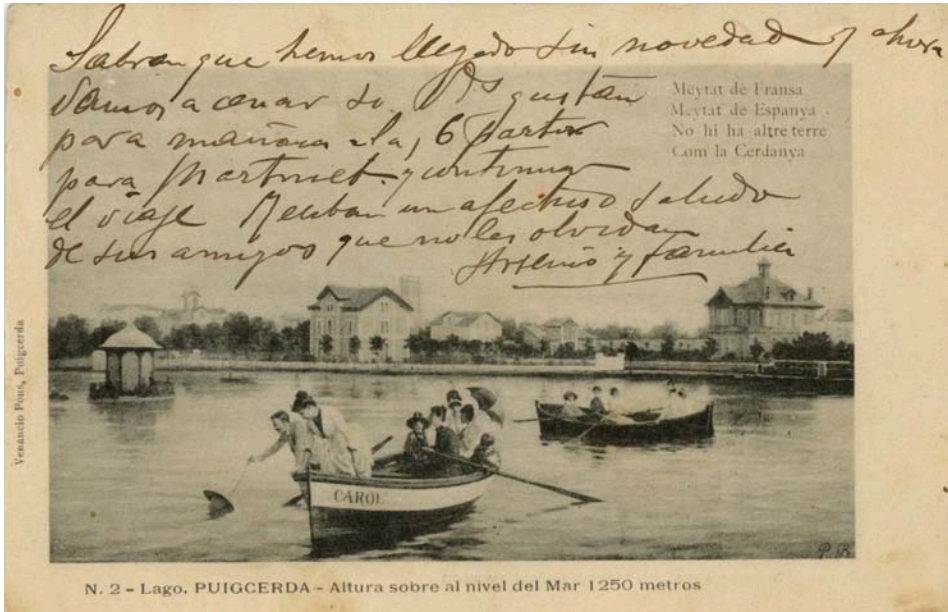 Sabran que hemos llegado sin novedad y ahora
vamos a cenar si Vds gustan
para mañana a las 6 partir
para Martinet y continuar
el viaje Reciban un afectuso saludo
de sus amigos que no les olvidan
Arsenio y familia
Meytat de Fransa
Meytat de Espanya
No hi ha altre terre
Com la Cerdanya
Venancio Pons, Puigcerda
CAROL
P. B.
N. 2 - Lago. PUIGCERDA - Altura sobre al nivel del Mar 1250 metros